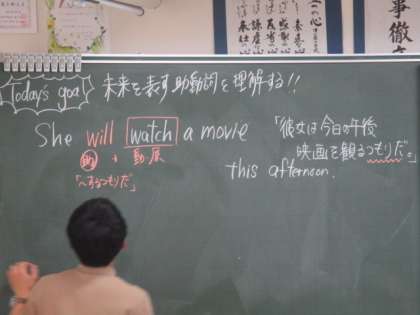 Today's goal 未来を表す助動詞を理解する!!
She will watch a movie
this afternoon.
助 + 動原
「~するつもりだ。」
「彼女は今日の午後
映画を観るつもりだ。」
事徹